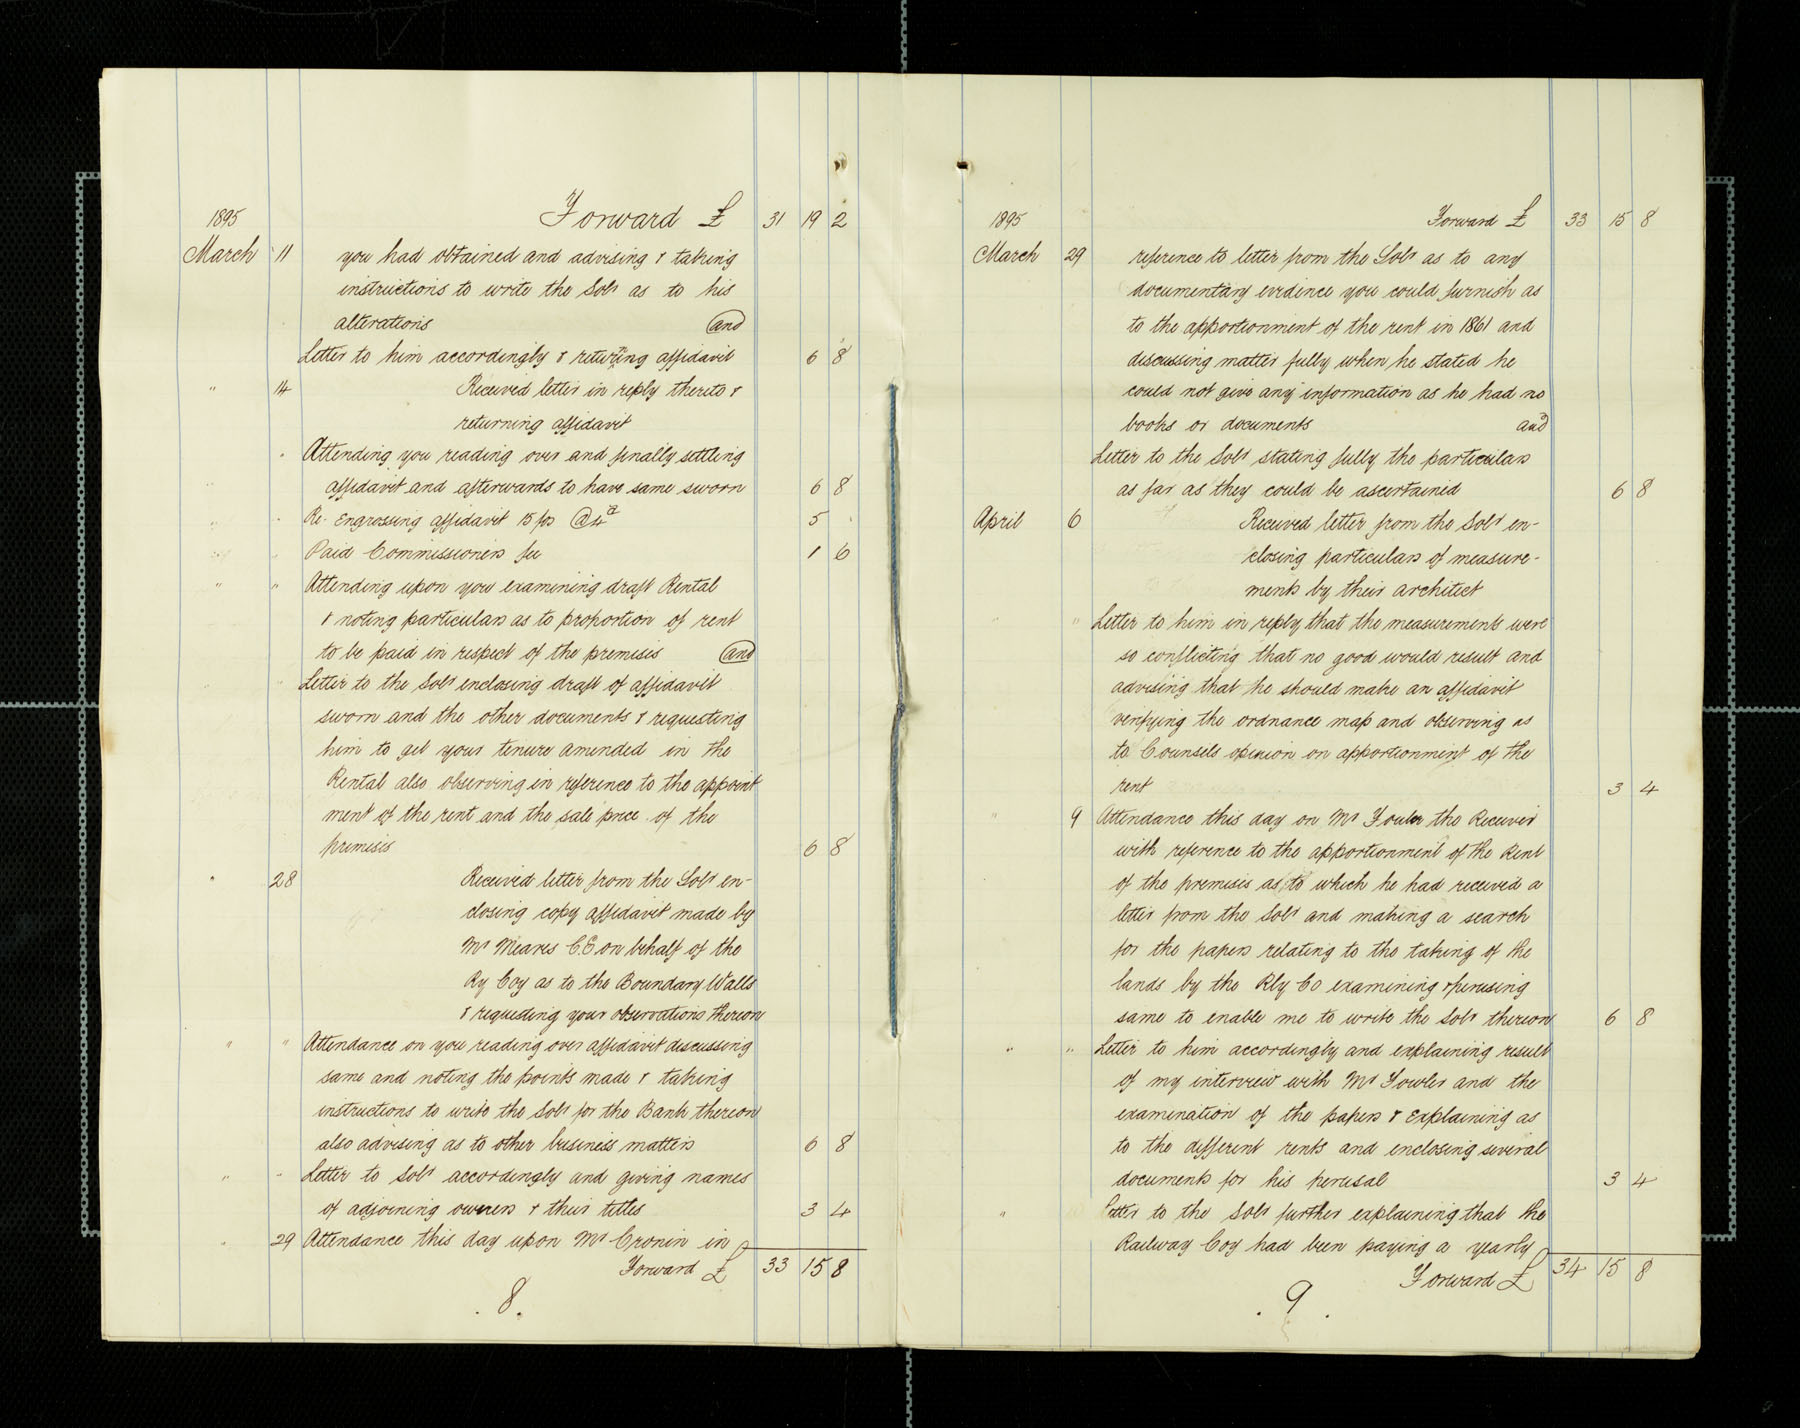 Forward £ 31 19 2
1895
March 11 you had obtained and advising & taking
instructions to write the Solr as to his
alterations and
Letter to him accordingly & returning affidavit 6 8
" 14 Received letter in reply thereto &
returning affidavit
" Attending you reading over and finally settling
affidavit and afterwards to have same sworn 6 8
" " Re-Engrossing affidavit 15 fos @ 4d 5 "
" " Paid Commissioners fee 1 6
" " Attending upon you examining draft Rental
& noting particulars as to proportion of rent
to be paid in respect of the premises and
Letter to the Solr enclosing draft of affidavit
sworn and the other documents & requesting
him to get your tenure amended in the
Rental also observing in reference to the appoint
ment of the rent and the sale price of the
premises 6 8
" 28 Received letter from the Solr en-
closing copy affidavit made by
Mr Meares CE on behalf of the
Ry Coy as to the Boundary Walls
& requesting your observations thereon
" " Attendance on you reading over affidavit discussing
same and noting the points made & taking
instructions to write the Solr for the Bank thereon
also advising as to other business matters 6 8
" " Letter to Solr accordingly and giving names
of adjoining owners & their titles 3 4
" 29 Attendance this day upon Mr Cronin in
Forward £ 33 15 8
. 8 .
Forward £ 33 15 8
1895
March 29 reference to letter from the Solr as to any
documentary evidence you could furnish as
to the apportionment of the rent in 1861 and
discussing matter fully when he stated he
could not give any information as he had no
books or documents and
Letter to the Solr stating fully the particulars
as far as they could be ascertained 6 8
April 6 Received letter from the Solr en-
closing particulars of measure-
ments by their architect
" " Letter to him in reply that the measurements were
so conflicting that no good would result and
advising that he should make an affidavit
verifying the ordnance map and observing as
to Counsels opinion on apportionment of the
rent 3 4
" 9 Attendance this day on Mr Fowler the Receiver
with reference to the apportionment of the Rent
of the premises as to which he had received a
letter from the Solr and making a search
for the papers relating to the taking of the
lands by the Rly Co examining & perusing
same to enable me to write the Solr thereon 6 8
" " Letter to him accordingly and explaining result
of my interview with Mr Fowler and the
examination of the papers & explaining as
to the different rents and enclosing several
documents for his perusal 3 4
" Letter to the Solr further explaining that the
Railway Coy had been paying a yearly
Forward £ 34 15 8
. 9 .